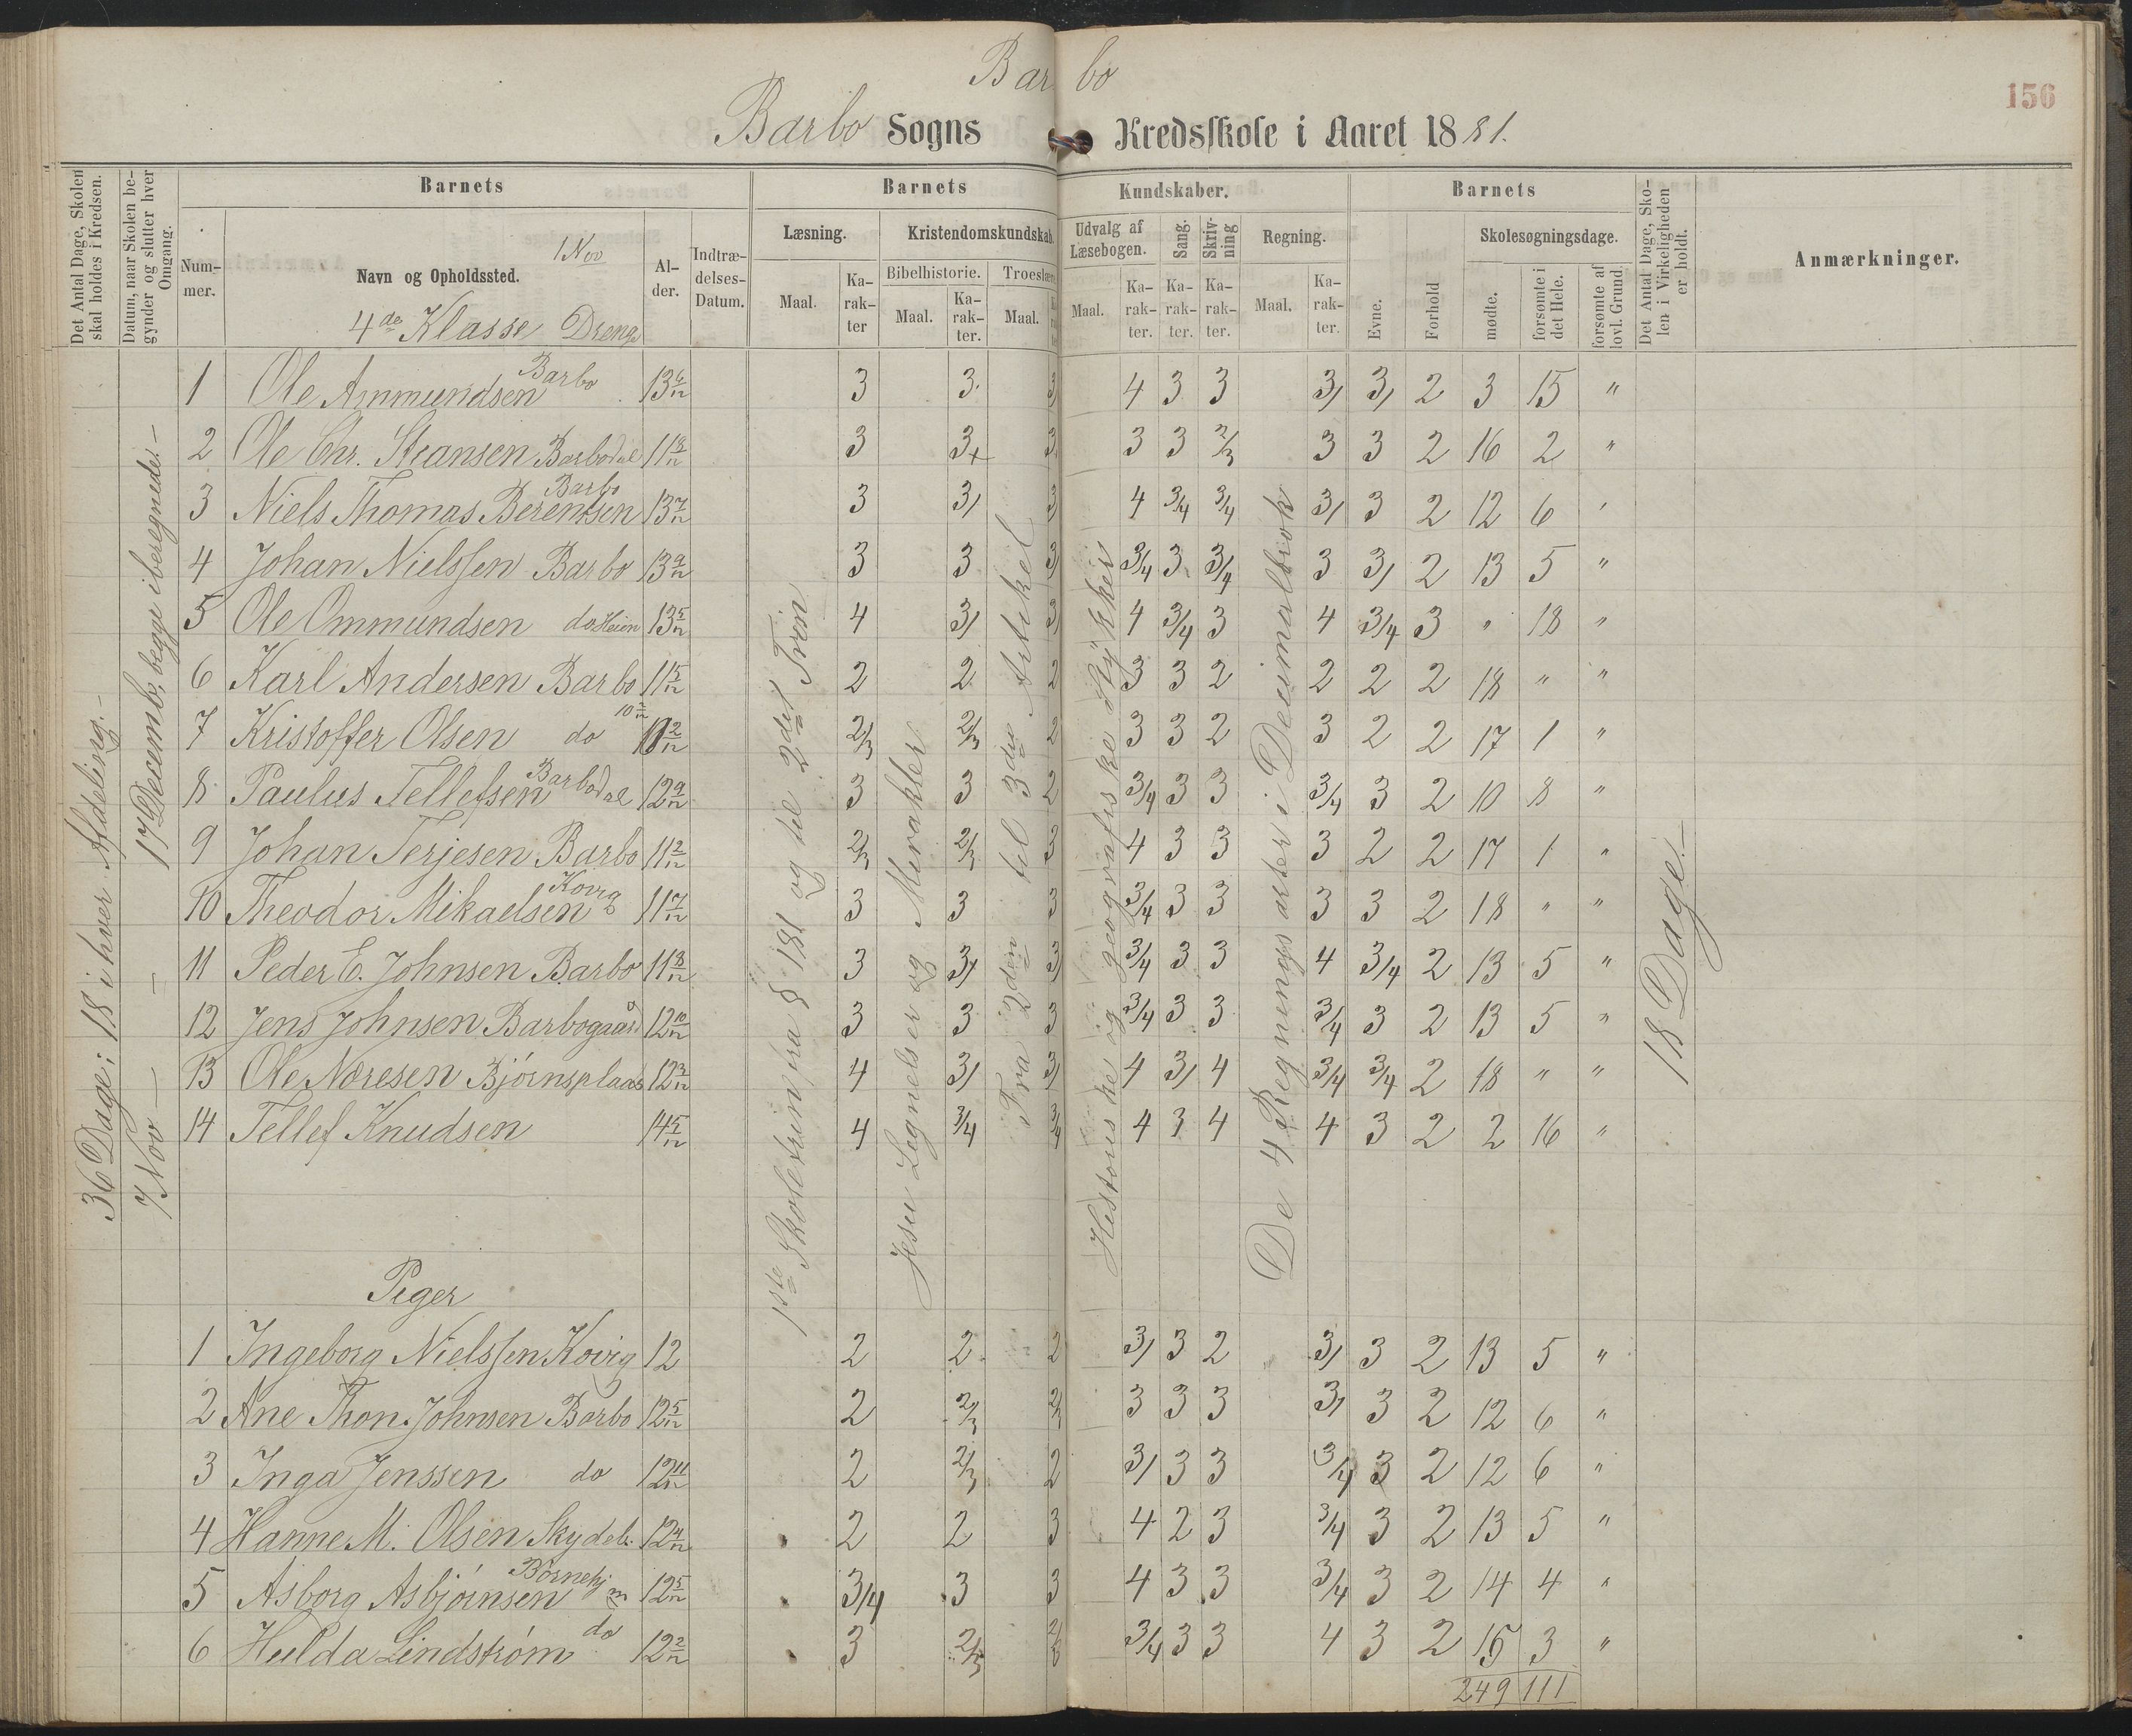 Bar bo
156
Barbo Sogns Kredsskole i Aaret 1881.
Det Antal Dage, Skolen skal holdes i Kredsen.
Datum, naar Skolen begynder og slutter hver Omgang.
Barnets
Barnets
Kundskaber.
Barnets
Det Antal Dage, Skolen i Virkeligheden er holdt.
Anmærkninger.
Nummer.
Navn og Opholdssted.
1 Nov
Alder.
Indtrædelses-Datum.
Læsning.
Kristendomskundskab.
Udvalg af Læsebogen.
Sang.
Skrivning
Regning.
Evne.
Forhold
Skolesøgningsdage.
Bibelhistorie.
Troeslære
Maal.
Karakter
Maal.
Karakter.
Maal.
Maal.
Karakter.
Karakter.
Karakter.
Maal.
Karakter.
mødte.
forsømte i det Hele.
forsømte af lovl. Grund.
4de Klasse Drenge
36 Dage: 18 i hver Afdeling.–
7 Nov – – 17 Decemb, begge iberegnede.–
1ste Skoletrin fra § 181 og til 2det Trin
Jesu Lignelser og Mirakler
Fra 2den til 3die Artikel
Historiske og geografiske Stykker
De 4 Regningsarter i Decimalbrøk
18 Dage.–
1 Ole Ammundsen Barbo 13 6/12 3 3 3/ 4 3 3 3/ 3/ 2 3 15 "
2 Ole Chr. Steansen Barbodal 11 8/12 3 3+ 3 3 3 2/3 3 3 2 16 2 "
3 Niels Thomas Berentsen Barbo 13 7/12 3 3/ 3 4 3/4 3/4 3/ 3 2 12 6 "
4 Johan Nielssen Barbo 13 9/12 3 3 3/ 3/4 3 3/4 3 3/ 2 13 5 "
5 Ole Ommundsen do Heien 13 5/12 4 3/ 3/ 4 3/4 3 4 3/4 3 " 18 "
6 Karl Andersen Barbo 11 5/12 2 2 2 3 3 2 2 2 2 18 " "
7 Kristoffer Olsen do 10 2/12 2/3 2/3 2 3 3 2 3 2 2 17 1 "
8 Paulus Tellefsen Barbodal 12 9/12 3 3 2 3/4 3 3 3/4 3 2 10 8 "
9 Johan Terjesen Barbo 11 2/12 2/3 2/3 3 4 3 3 3 2 2 17 1 "
10 Theodor Mikaelsen Kovig 11 7/12 3 3 3 3/4 3 3 3 3 2 18 " "
11 Peder E. Johnsen Barbo 11 8/12 3 3/ 3/ 3/4 3 3 4 3/4 2 13 5 "
12 Jens Johnsen Barbogaard 12 10/12 3 3 3 3/4 3 3 3/4 3 2 13 5 "
13 Ole Noresen Bjørnsplads 12 3/12 4 3/ 3/ 4 3/ 4 3/4 3/4 2 18 " "
14 Tellef Knudsen 14 5/12 4 3/4 3/4 4 3 4 4 3 2 2 16 "
Piger
1 Ingeborg Nielssen Kovig 12 2 2 2 3/ 3 2 3/ 3 2 13 5 "
2 Ane Thon. Johnsen Barbo 12 5/12 2 2/3 2/3 3 3 3 3/ 3 2 12 6 "
3 Inga Jenssen do 12 11/12 2 2/3 2 3/ 3 3 3/4 3 2 12 6 "
4 Hanne M. Olsen Skydeb. 12 4/12 2 2 3 4 2 3 3/4 3 2 13 5 "
5 Asborg Asbjørnsen Børnehj m 12 5/12 3/4 3 3 4 3 3 3/4 3 2 14 4 "
6 Hulda Lindstrøm do 12 2/12 3 2/3 2/3 3/4 3 3 4 3 2 15 3 "
249 111